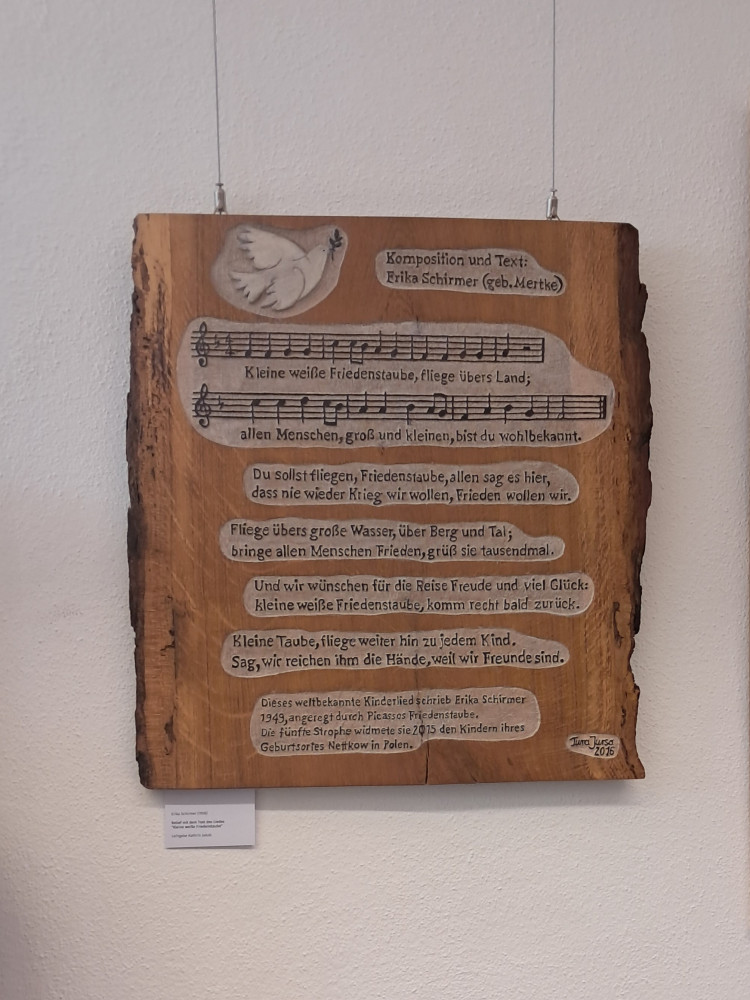 Komposition und Text:
Erika Schirmer (geb. Mertke)
Kleine weiße Friedenstaube, fliege übers Land;
allen Menschen, groß und kleinen, bist du wohlbekannt.
Du sollst fliegen, Friedenstaube, allen sag es hier,
dass nie wieder Krieg wir wollen, Frieden wollen wir.
Fliege übers große Wasser, über Berg und Tal;
bringe allen Menschen Frieden, grüß sie tausendmal.
Und wir wünschen für die Reise Freude und viel Glück:
kleine weiße Friedenstaube, komm recht bald zurück.
Kleine Taube, fliege weiter hin zu jedem Kind.
Sag, wir reichen ihm die Hände, weil wir Freunde sind.
Dieses weltbekannte Kinderlied schrieb Erika Schirmer
1949, angeregt durch Picassos Friedenstaube.
Die fünfte Strophe widmete sie 2015 den Kindern ihres
Geburtsortes Nettkow in Polen.
2016
Erika Schirmer
Relief mit dem Text des Liedes
"Kleine weiße Friedenstaube"